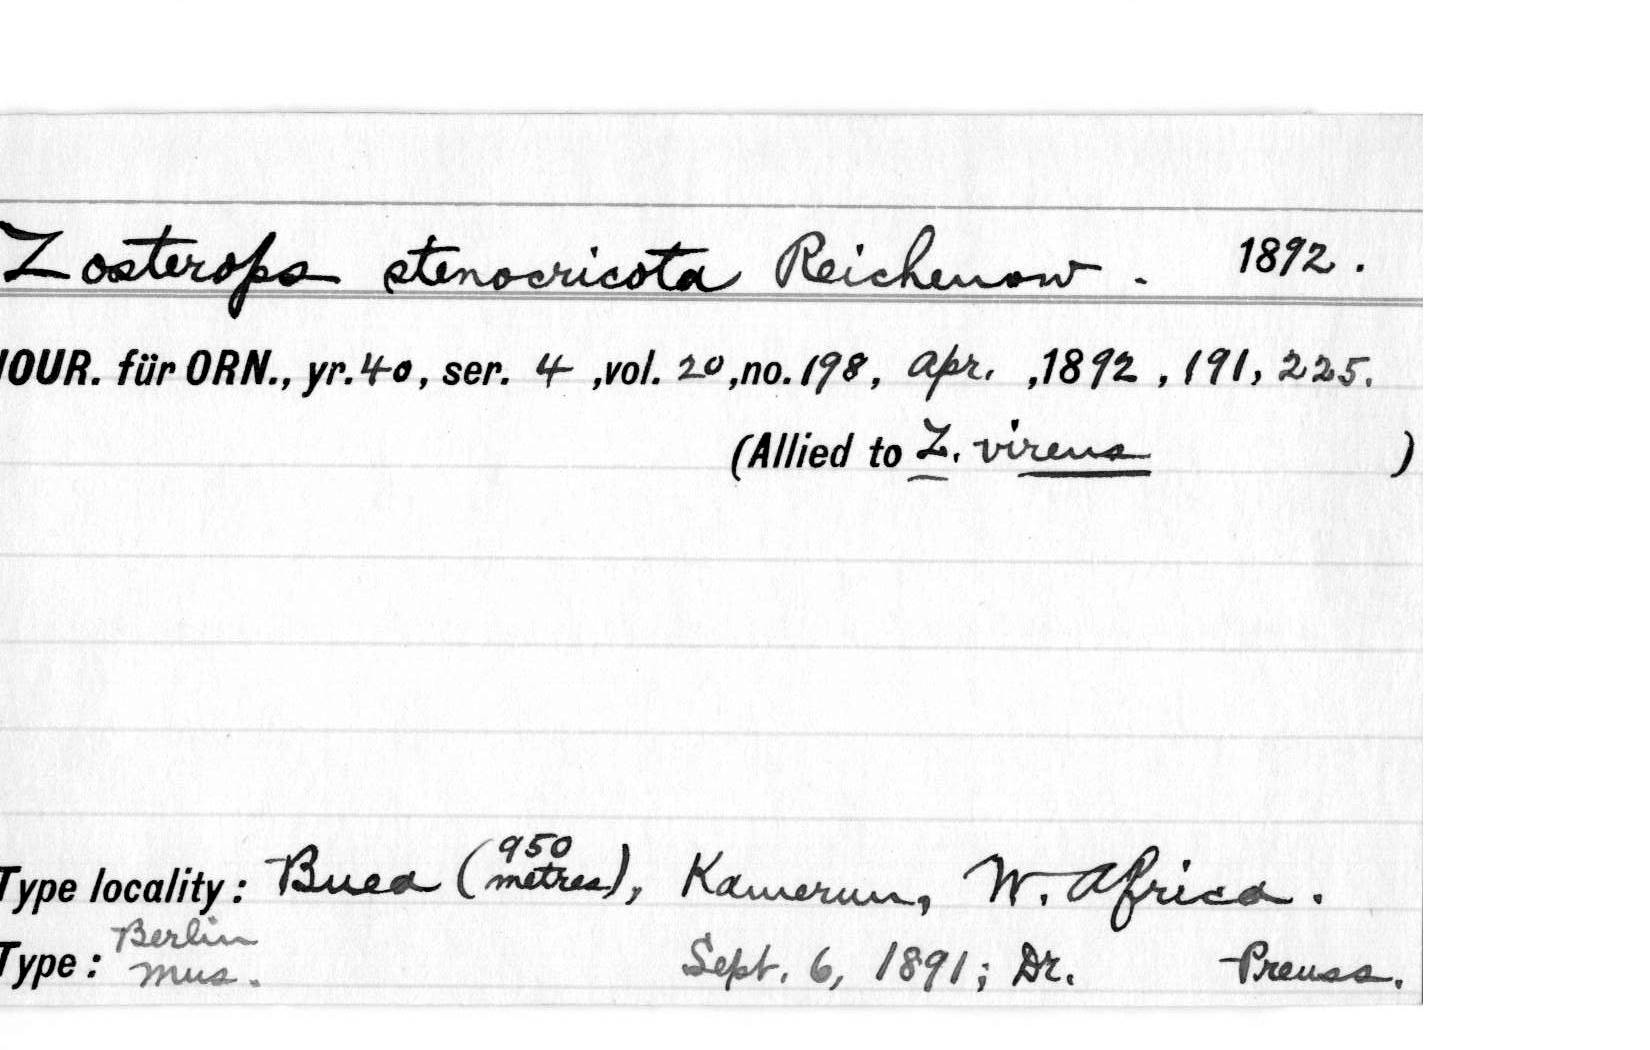 Zosterops stenocricota Reichenow . 1892 .
JOUR. für ORN., yr. 40, ser. 4 ,vol. 20 ,no. 198, Apr. ,1892 , 191, 225.
(Allied to Z. virens )
Type locality : Buea (950 metres), Kamerun, W. Africa .
Type : Berlin Mus. Sept. 6, 1891 ; Dr. Preuss.